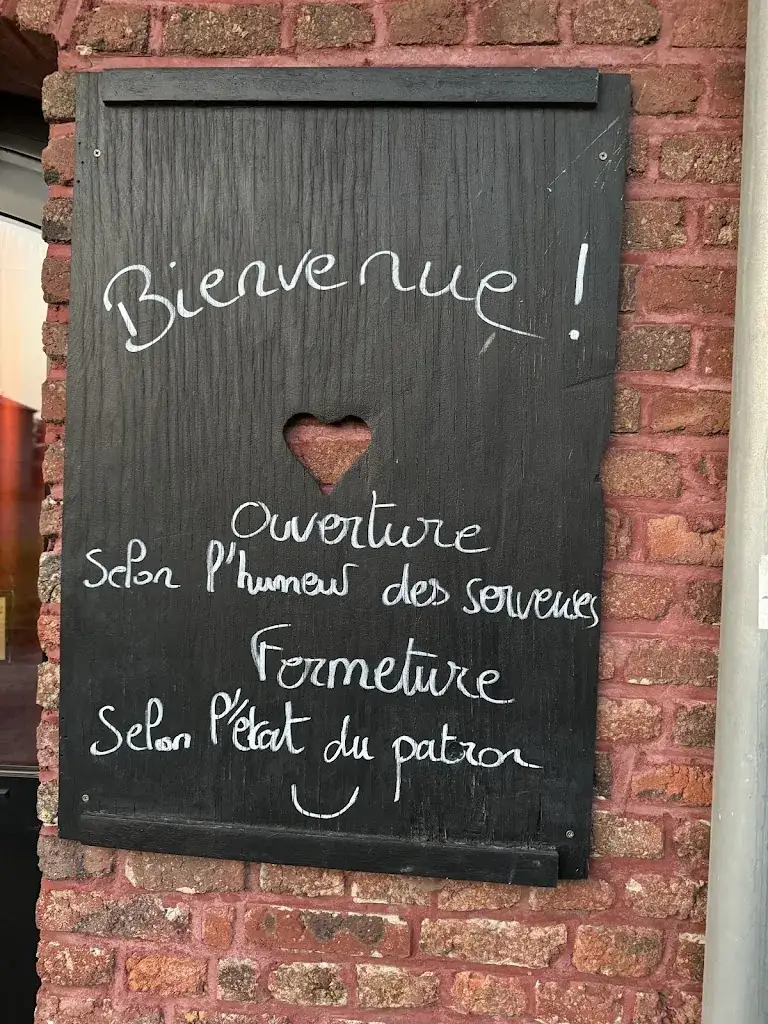 Bienvenue !
Ouverture
Selon l'humeur des serveuses
Fermeture
Selon l'état du patron